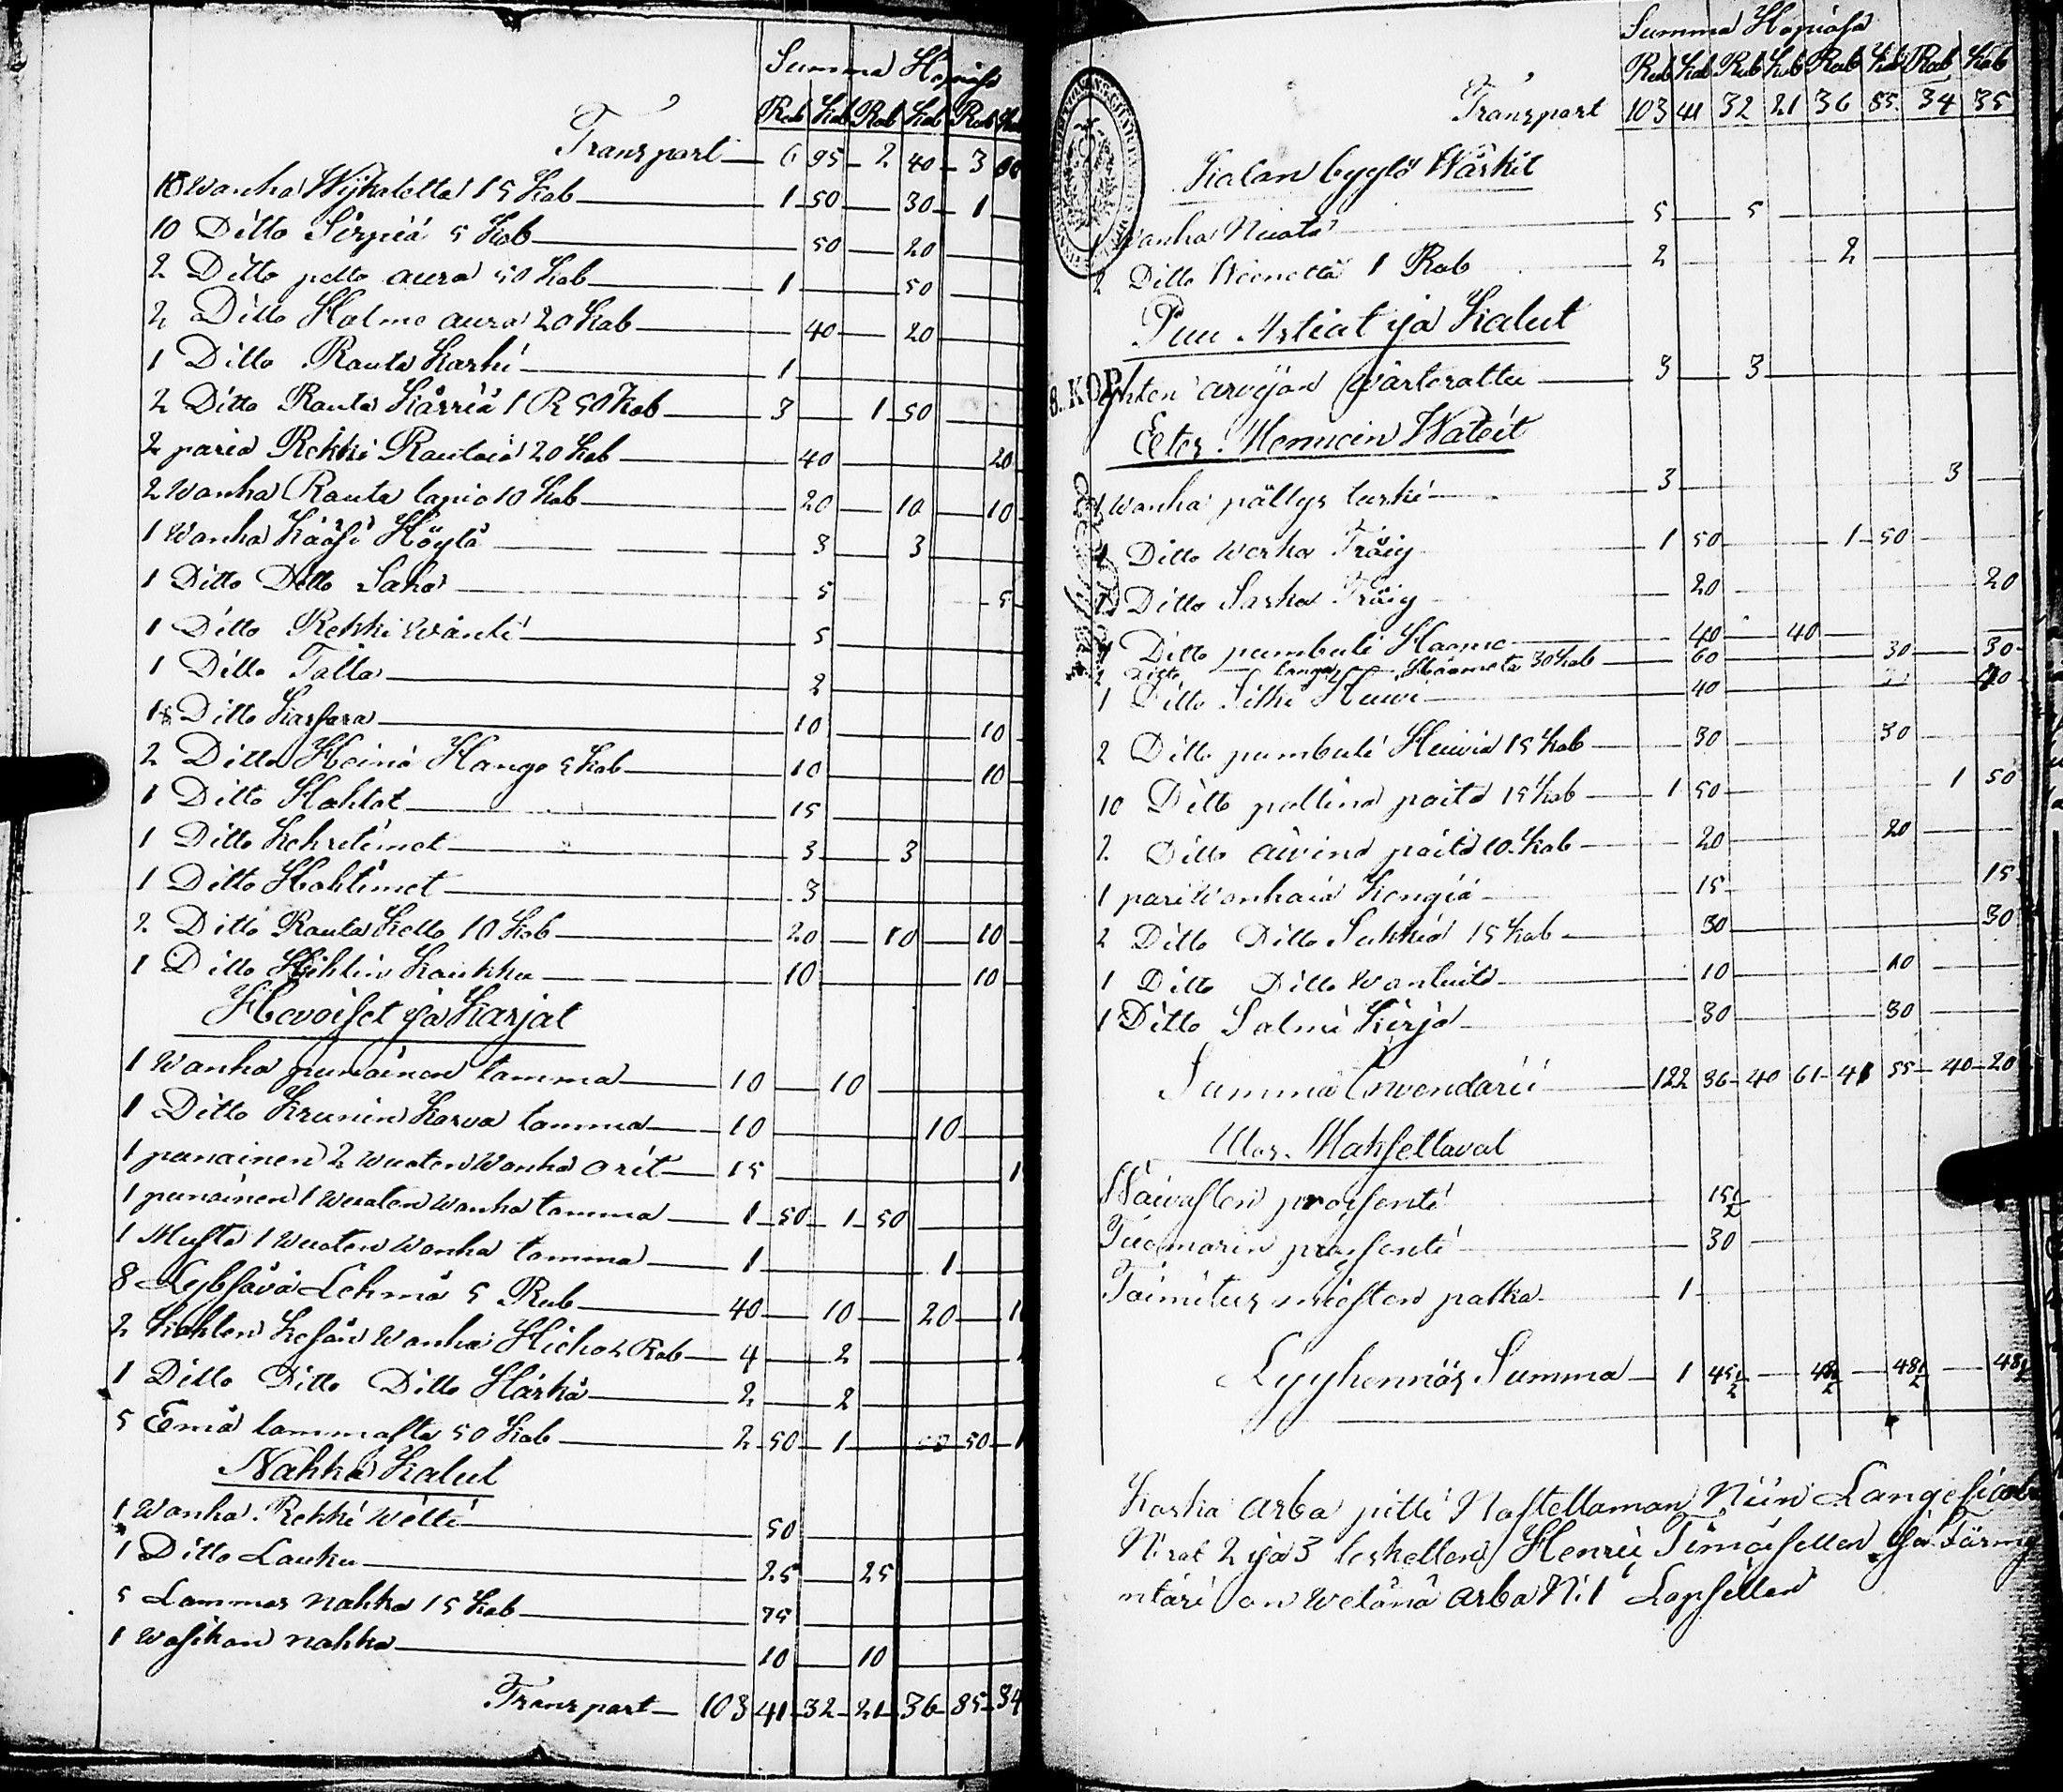 Summa Hopiasa
Rub Kob Rub Kob Rub Kob
Transport 6 95 2 40 3
10 Wanha Wijkatetta 15 Kob 1 50 30 1
10 Ditto Sirpiä 5 Kob 50 20
2 Ditto pelto aura 50 Kob 1 50
2 Ditto Halme aura 20 Kob 40 20
1 Ditto Rauta Karhi 1
2 Ditto Rauta Kärriä 1 R 50 Kob 3 1 50
2 paria Rekki Rautoia 20 Kob 40 20
2 Wanha Rauta lapio 10 Kob 20 10 10
1 Wanha Kääsi Höylä 3 3
1 Ditto Ditto Saha 5 5
1 Ditto Rekki Wänti 5
1 Ditto Talta 2
1 Ditto Karsara 10 10
2 Ditto Heinä Hango 5 Kob 10 10
1 Ditto Hohtot 15
1 Ditto Kehretimet 3 3
1 Ditto Hohtimet 3
2 Ditto Rauta Kello 10 Kob 20 10 10
1 Ditto Hihlin Koukku 10 10
Hevoiset ja Karjat
1 Wanha punainen tamma 10 10
1 Ditto Krunin Korva tamma 10 10
1 punainen 2 Wuoten Wanha orit 15 1
1 punainen 1 Wuoten Wanha tamma 1 50 1 50
1 Musta 1 Wuoten Wanha tamma 1 1
8 Lybsävä Lehmä 5 Rub 40 10 20 1
2 Kahten Kesän Wanha Hieho 2 Rob 4 2
1 Ditto Ditto Ditto Härkä 2 2
5 Emä lammasta 50 Kob 2 50 1 50 1
Nahka Kalut
1 Wanha Rekki Wälti 50
1 Ditto Lauku 25 25
5 Lammas nahka 15 Kob 75
1 Wasikan nahka 10 10
Transport 103 41 32 21 36 85 34
Summa Hopiasa
Rub Kob Rub Kob Rub Kob Rub Kob
Transport 103 41 32 21 36 85 34 35
Kalan byytö Wärkit
1 Wanha Nuota 5 5
2 Ditto Wenettä 1 Rub 2 2
Puu Astiat ja Kalut
8. KOP
Yhten arvijan Wärterattu 3 3
Eetes Mennein Wateit
1 Wanha pältys turki 3 3
1 Ditto Werka Tröig 1 50 1 50
1 Ditto Sarka Tröig 20 20
1 Ditto pumbuli Hame 40 40
2 Ditto langa Hameta 30 Kob 60 30 30
1 Ditto Silki Huivi 40
2 Ditto pumbuli Huivia 15 Kob 30 30
10 Ditto paltina paita 15 Kob 1 50 1 50
2 Ditto aivina paita 10 Kob 20 20
1 pari Wanhaia Kengiä 15 15
2 Ditto Ditto Sukkia 15 Kob 30 30
1 Ditto Ditto Wantuita 10 10
1 Ditto Salmi Kirja 30 30
Summa Inventarii 122 36 40 61 41 55 40 20
Ulos Maksettavat
Wäivasten prosenti 15 1/2
Tuomarin prosenti 30
Toimitus miesten palka 1
Lyyhennös Summa 1 45 1/2 48 1/2 48 1/2 48 1/2
Koska arba pitti Nastettaman Niin Langesivat
N:rot 2 ja 3 leskellen Henric Timoisellen ja Förmy
ntäri on Wetänä arba N:1 Lapsellen